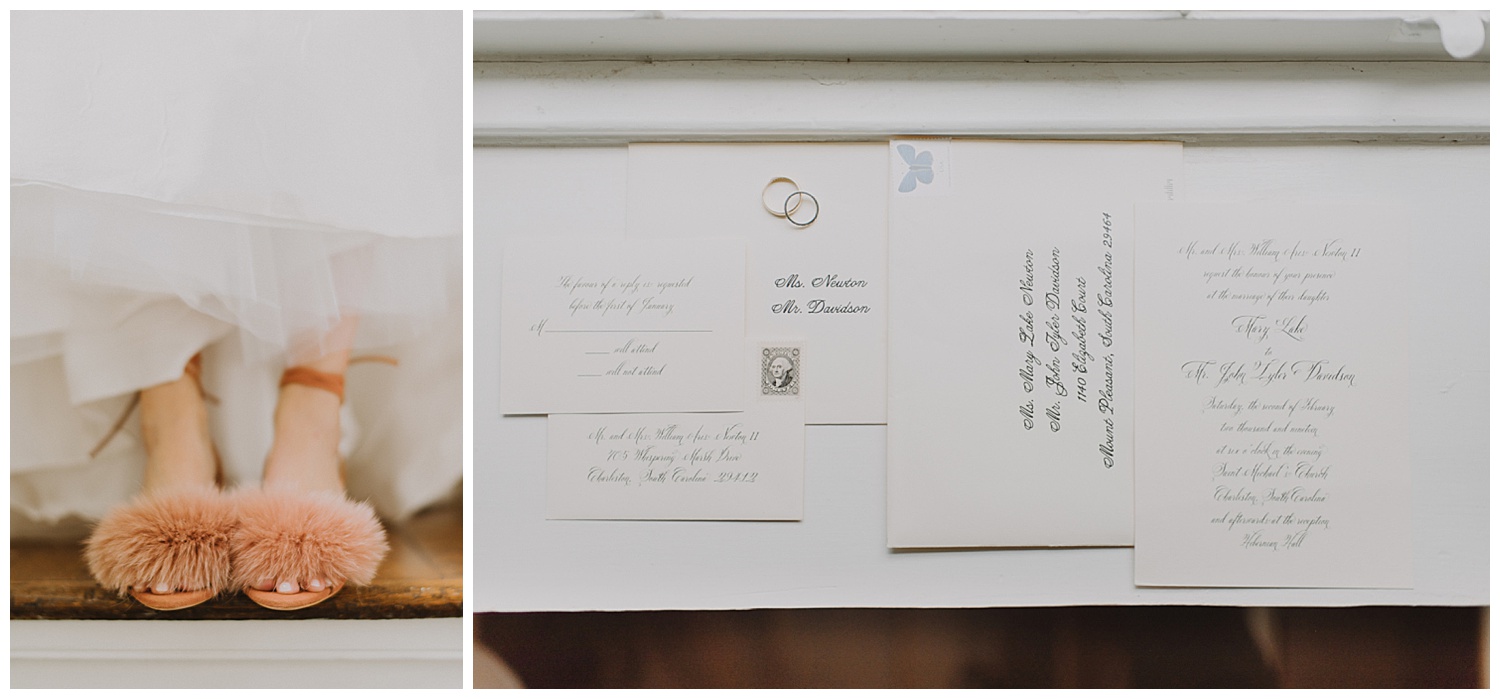 The favour of a reply is requested
before the first of January
M
will attend
will not attend
Mr. and Mrs. William Ares Newton II
705 Whispering Marsh Drive
Charleston, South Carolina 29412
Ms. Newton
Mr. Davidson
Ms. Mary Lake Newton
Mr. John Tyler Davidson
1140 Elizabeth Court
Mount Pleasant, South Carolina 29464
Mr. and Mrs. William Ares Newton II
request the honour of your presence
at the marriage of their daughter
Mary Lake
to
Mr. John Tyler Davidson
Saturday, the second of February
two thousand and nineteen
at six o'clock in the evening
Saint Michael's Church
Charleston, South Carolina
and afterwards at the reception
Hibernian Hall